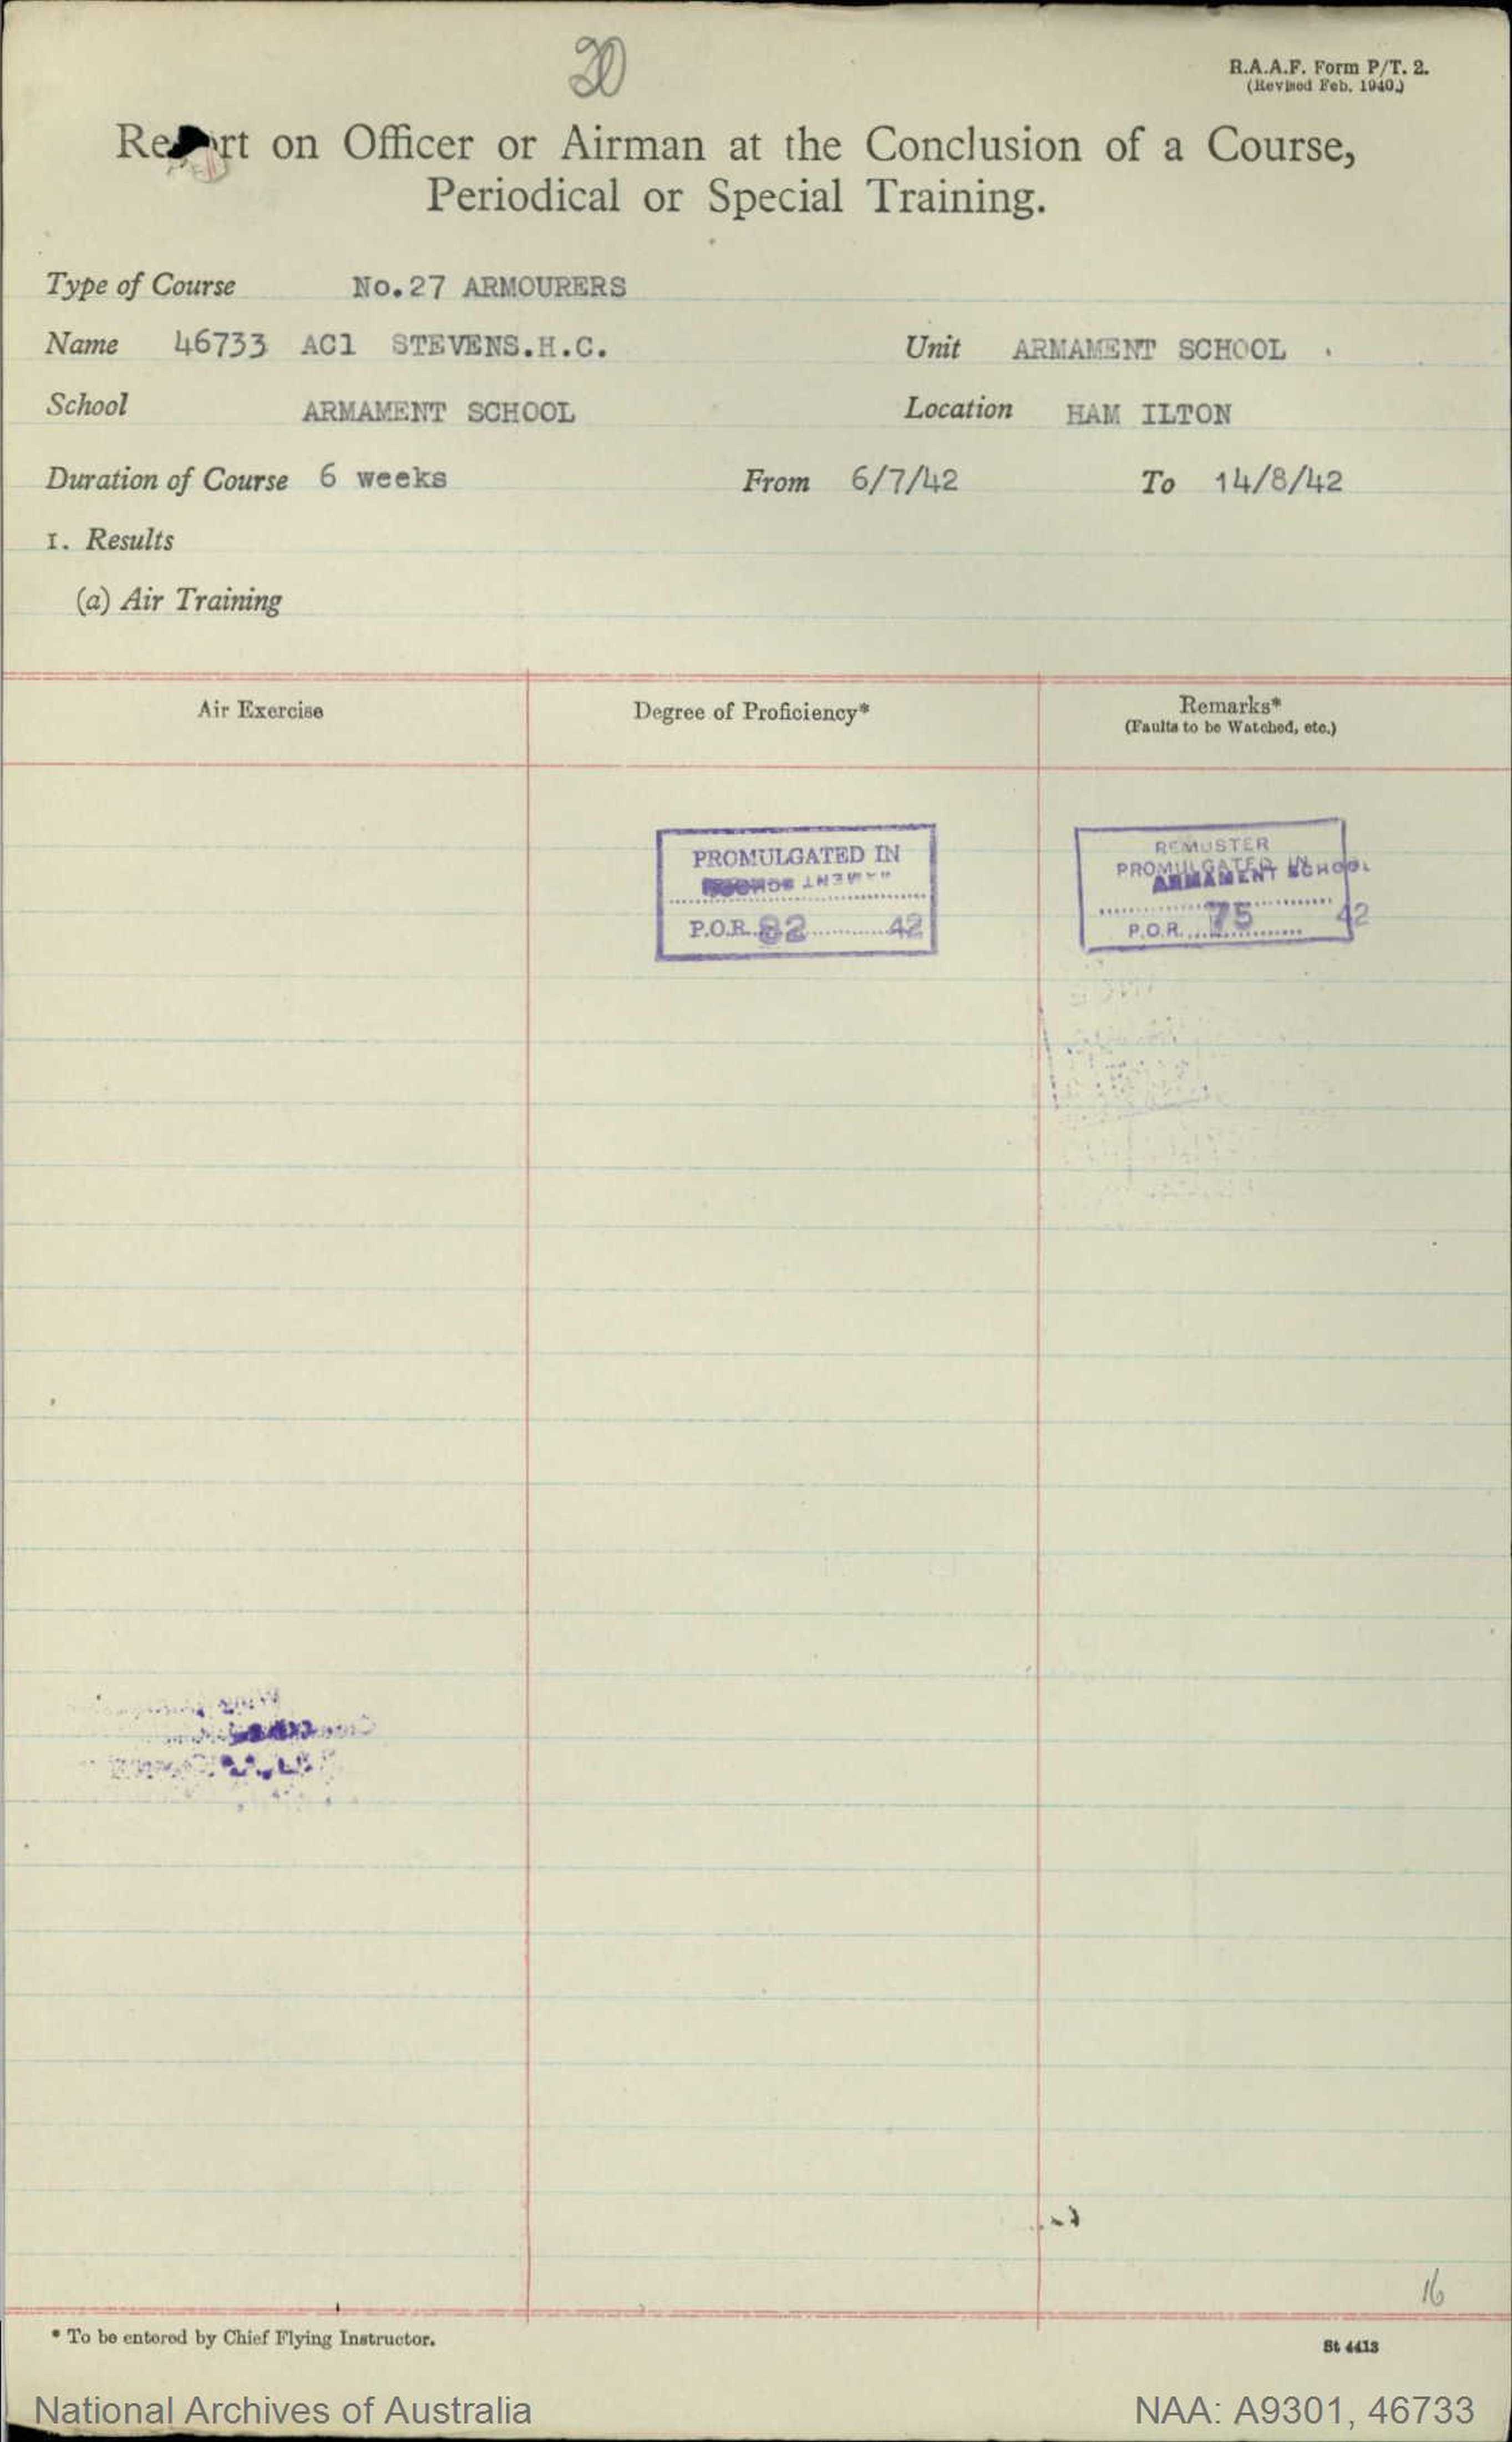 20
R.A.A.F. Form P/T. 2.
(Revised Feb. 1940.)
Report on Officer or Airman at the Conclusion of a Course,
Periodical or Special Training.
Type of Course No.27 ARMOURERS
Name 46733 AC1 STEVENS.H.C. Unit ARMAMENT SCHOOL
School ARMAMENT SCHOOL Location HAM ILTON
Duration of Course 6 weeks From 6/7/42 To 14/8/42
1. Results
(a) Air Training
Air Exercise Degree of Proficiency* Remarks*
(Faults to be Watched, etc.)
PROMULGATED IN
P.O.R. 82 42
REMUSTER
PROMULGATED IN
ARMAMENT SCHOOL
P.O.R. 75 42
16
* To be entered by Chief Flying Instructor.
St 4413
National Archives of Australia NAA: A9301, 46733